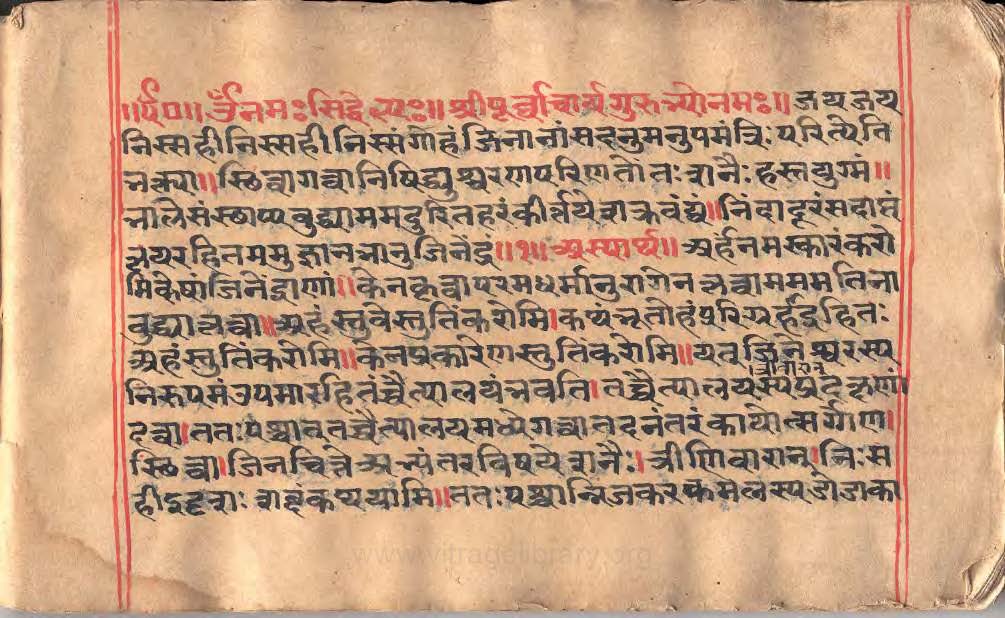 ॥र्द०॥ ॐनमःसिद्धेभ्यः॥ श्रीपूर्वाचार्यगुरुभ्योनमः॥ जयजय
निस्सहीनिस्सहीनिस्संगोहंजिनानांसदनुमनुपमंत्रिःपरित्येति
भक्त्या॥ स्छित्वागत्वानिषिद्युश्चरणपरिणतोतःशनैःहस्तयुग्मं॥
भालेसंस्छाप्यबुद्ध्याममदुरितहरंकीर्त्तयेशक्रवंद्यं॥ निंदादूरंसदाप्तं
क्षयरहितममुज्ञानभानुजिनेंद्रं॥१॥ अस्यार्थ॥ अर्हनमस्कारंकरो
मिकेषांजिनेंद्राणां॥ केनकृत्वापरमधर्मानुरागेनभत्त्वाममममतिना
बुद्ध्याभत्त्वा॥ अहंस्तुवेस्तुतिंकरोमि। कथंभूतोहंपुरिअर्हदुहितः
अहंस्तुतिंकरोमि॥ केनप्रकारेणस्तुतिंकरोमि॥ यतूजिनेश्वरस्य
निरूपमंउपमारहितंचैत्यालयंभवति। तच्चैत्यालयस्यप्रदक्षणां
दत्वा। ततःपश्चात्तच्चैत्यालयमध्येगत्वातदनंतरंकायोत्सर्गेण।
स्छित्वा। जिनचित्तेअभ्यंतरविषयेशनैः। त्रीणिवारान्। निःस
ही कथयामि॥ ततःपश्चान्निजकरकमलस्य
www.vitragelibrary.org